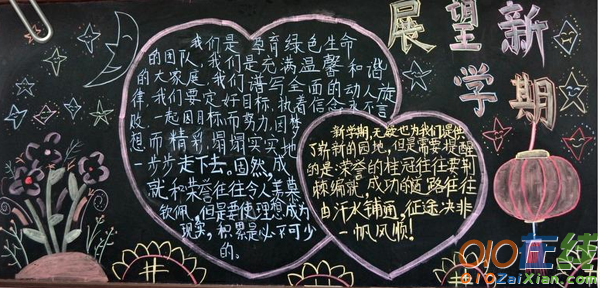 展望新
学期
我们是孕育绿色生命
的团队,我们是充满温馨和谐
的大家庭,我们谱写全面的动人旋
律,我们要定好目标,执着信念永不言
败,一起因目标而努力,因梦
想而精彩,塌塌实实地
一步步走下去。固然,成
就和荣誉往往令人羡慕
钦佩,但是要使理想成为
现实,积累是必不可少
的。
新学期,无疑也为我们提供
了崭新的园地,但是需要提醒
的是:荣誉的桂冠往往要荆
棘编就,成功的道路往往
由汗水铺通,征途决非
一帆风顺!
910在线
910ZaiXian.com